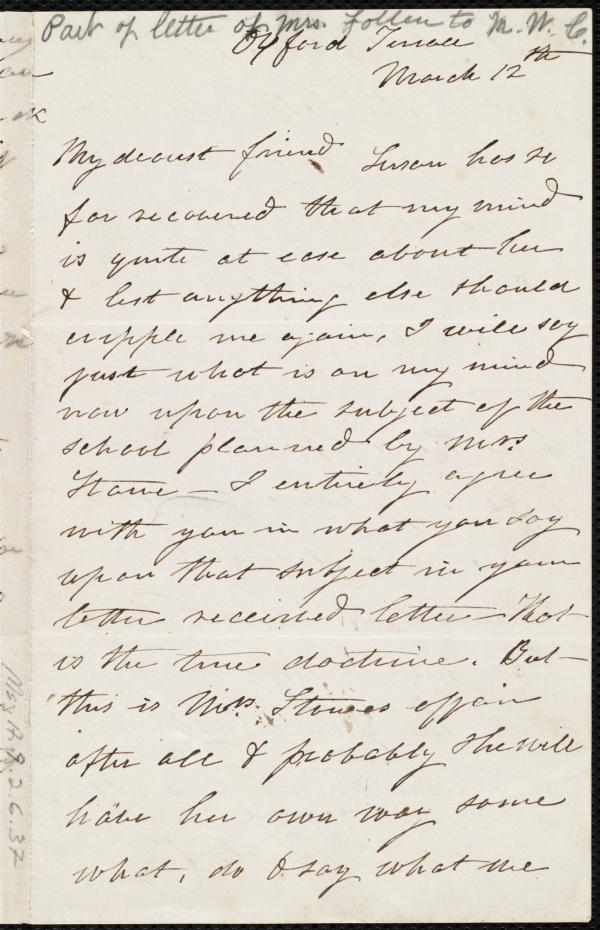 Part of letter of Mrs. Follen to M. W. C.
Oxford Terrace
March 12th
My dearest friend Susan has so
far recovered that my mind
is quite at ease about her
& lest anything else should
cripple me again, I will say
just what is on my mind
now upon the subject of the
school planned by Mrs.
Stowe – I entirely agree
with you in what you say
upon that subject in your
letter received letter – That
is the true doctrine. But –
this is Mrs. Stowes affair
after all & probably she will
have her own way some
what, do I say what we
Ms. A. 9. 2. 6. 37